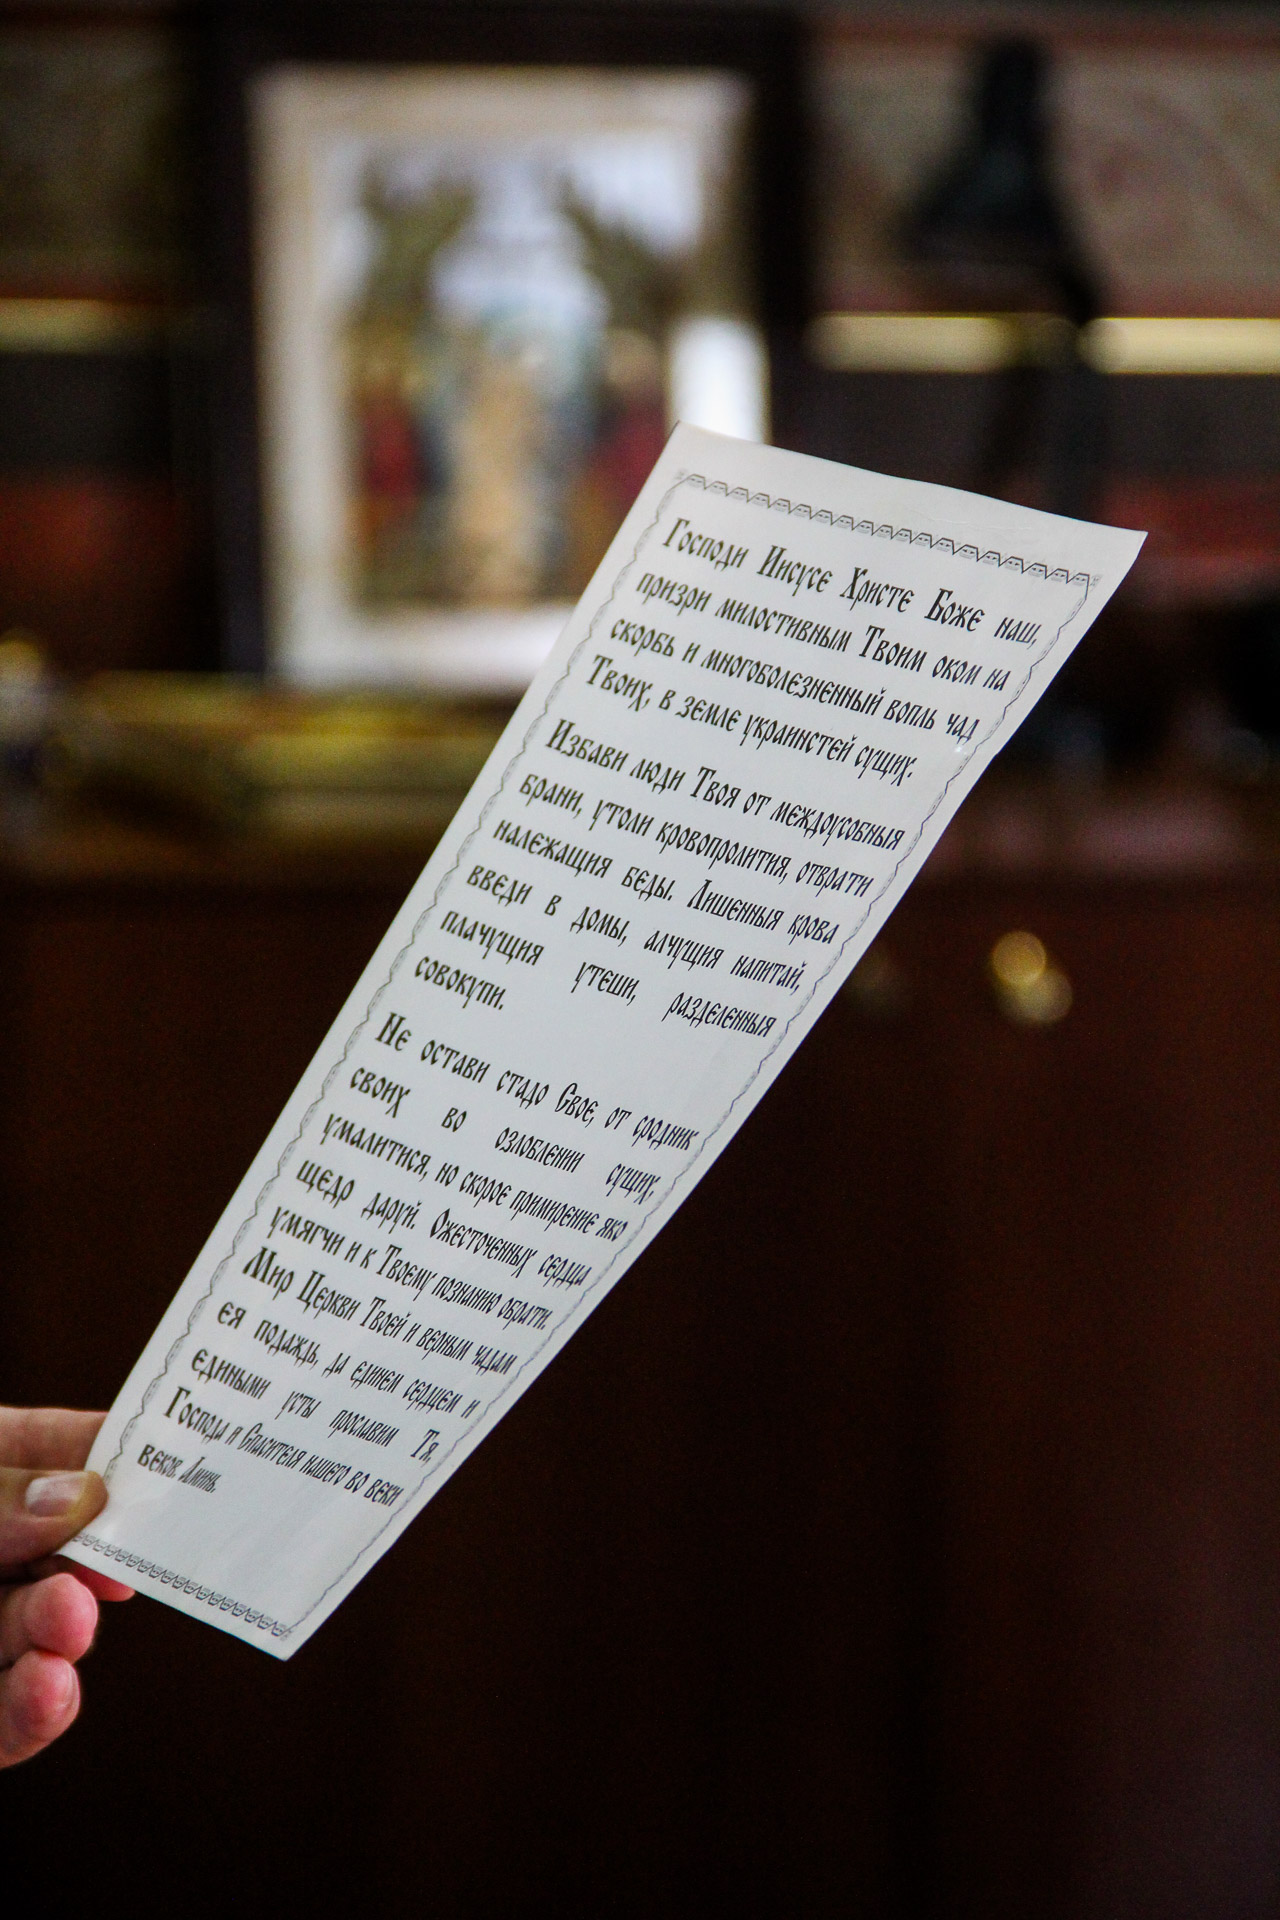 Господи Иисусе Христе Боже наш,
призри милостивным Твоим оком на
скорбь и многоболезненный вопль чад
Твоих, в земле украинстей сущих.
Избави люди Твоя от междоусобныя
брани, утоли кровопролития, отврати
належащия беды. Лишенныя крова
введи в домы, алчущия напитай,
плачущия утеши, разделенныя
совокупи.
Не остави стадо Свое, от сродник
своих во озлоблении сущих,
умалитися, но скорое примирение яко
щедр даруй. Ожесточенных сердца
умягчи и к Твоему познанию обрати.
Мир Церкви Твоей и верным чадам
ея подаждь, да единем сердцем и
едиными усты прославим Тя,
Господа и Спасителя нашего во веки
веков. Аминь.